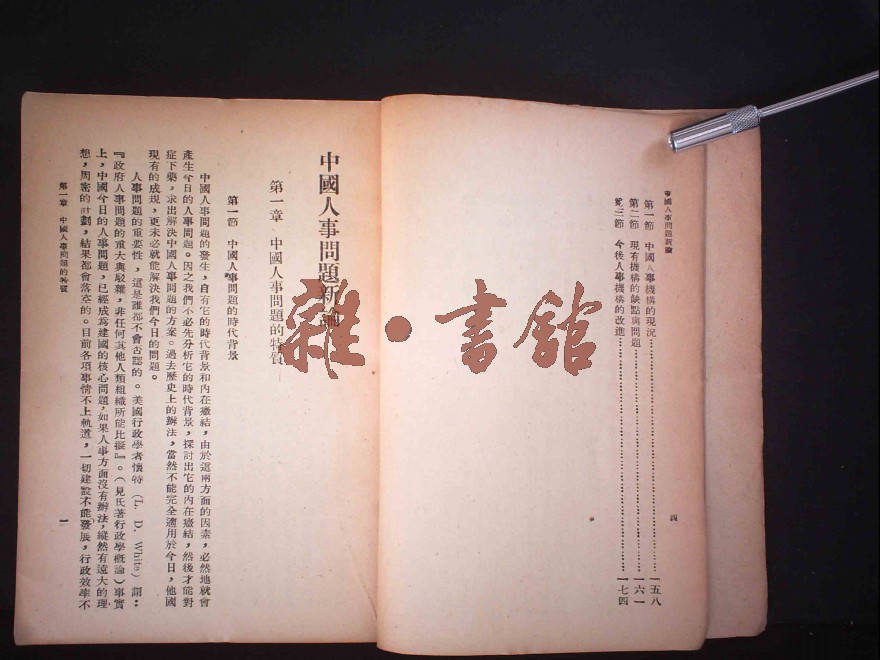 中國人事問題新論
第一節 中國人事機構的現況……………一五八
第二節 現有機構的缺點與問題……………一六一
第三節 今後人事機構的改進……………一七四
四
中國人事問題新論
第一章 中國人事問題的特質
第一節 中國人事問題的時代背景
中國人事問題的發生，自有它的時代背景和內在癥結，由於這兩方面的因素，必然地就會
產生今日的人事問題。因之我們不必先分析它的時代背景，探討出它的內在癥結，然後才能對
症下藥，求出解決中國人事問題的方案。過去歷史上的辦法，當然不能完全適用於今日，他國
現有的成規，更未必就能解決我們今日的問題。
人事問題的重要性，這是誰都不會否認的。美國行政學者懷特（L. D. White）謂：
『政府人事問題的重大與駁雜，非任何其他人類組織所能比擬』。（見氏著行政學概論）事實
上，中國今日的人事問題，已經成為建國的核心問題，如果人事方面沒有辦法，縱然有遠大的理
想，周密的計劃，結果都會落空的。目前各項事情不上軌道，一切建設不能發展，行政效率不
第一章 中國人事問題的特質
一
雜·書館